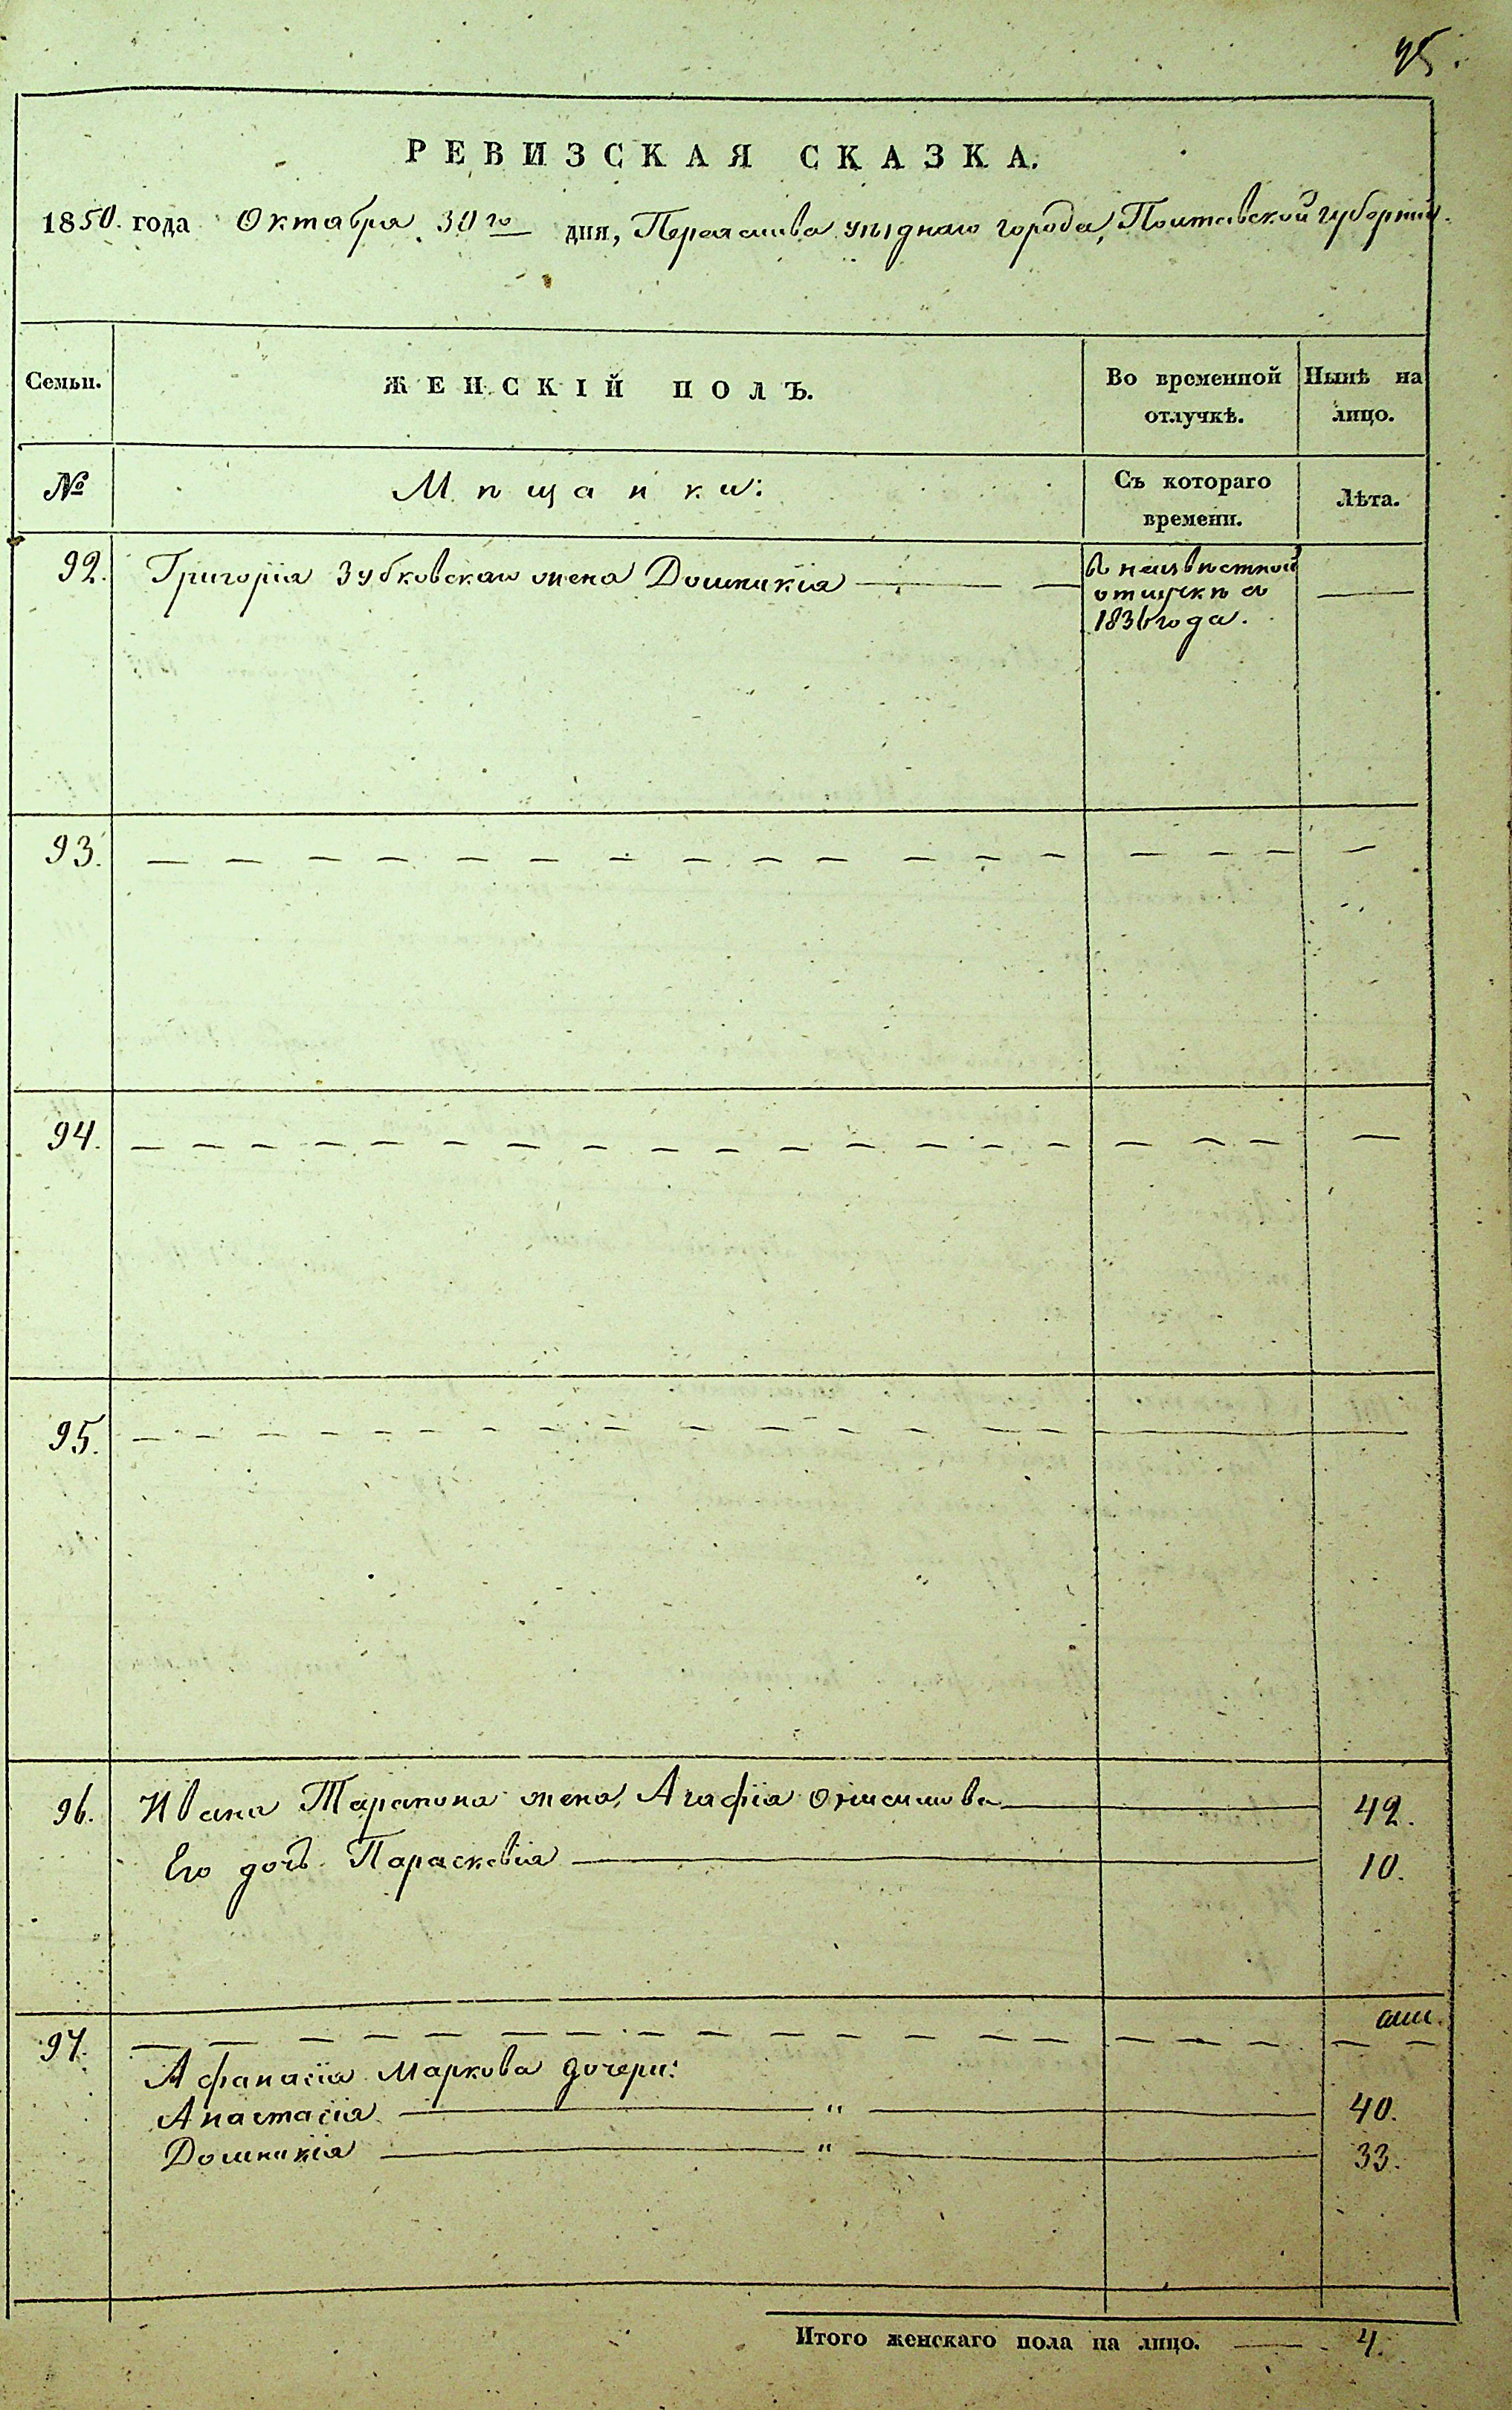 95.
РЕВИЗСКАЯ СКАЗКА.
1850. года Октября 30го дня, Переяслова уѣзднаго города, Полтавской губерніи.
Семьи. ЖЕНСКІЙ ПОЛЪ. Во временной отлучкѣ. Нынѣ на лицо.
№ Мѣщанки: Съ котораго времени. Лѣта.
92. Григорія Зубковскаго жена Домникія — въ неизвѣстной
отлучкѣ съ
1836 года. —
93. — — —
94. — — —
95. — — —
96. Ивана Тарапона жена, Агафія Онисимова — 42.
Его дочь Параскевія — 10.
97. — — —
Афанасія Маркова дочери:
Анастасія — " — 40.
Домникія — " — 33.
Итого женскаго пола на лицо. — 4.